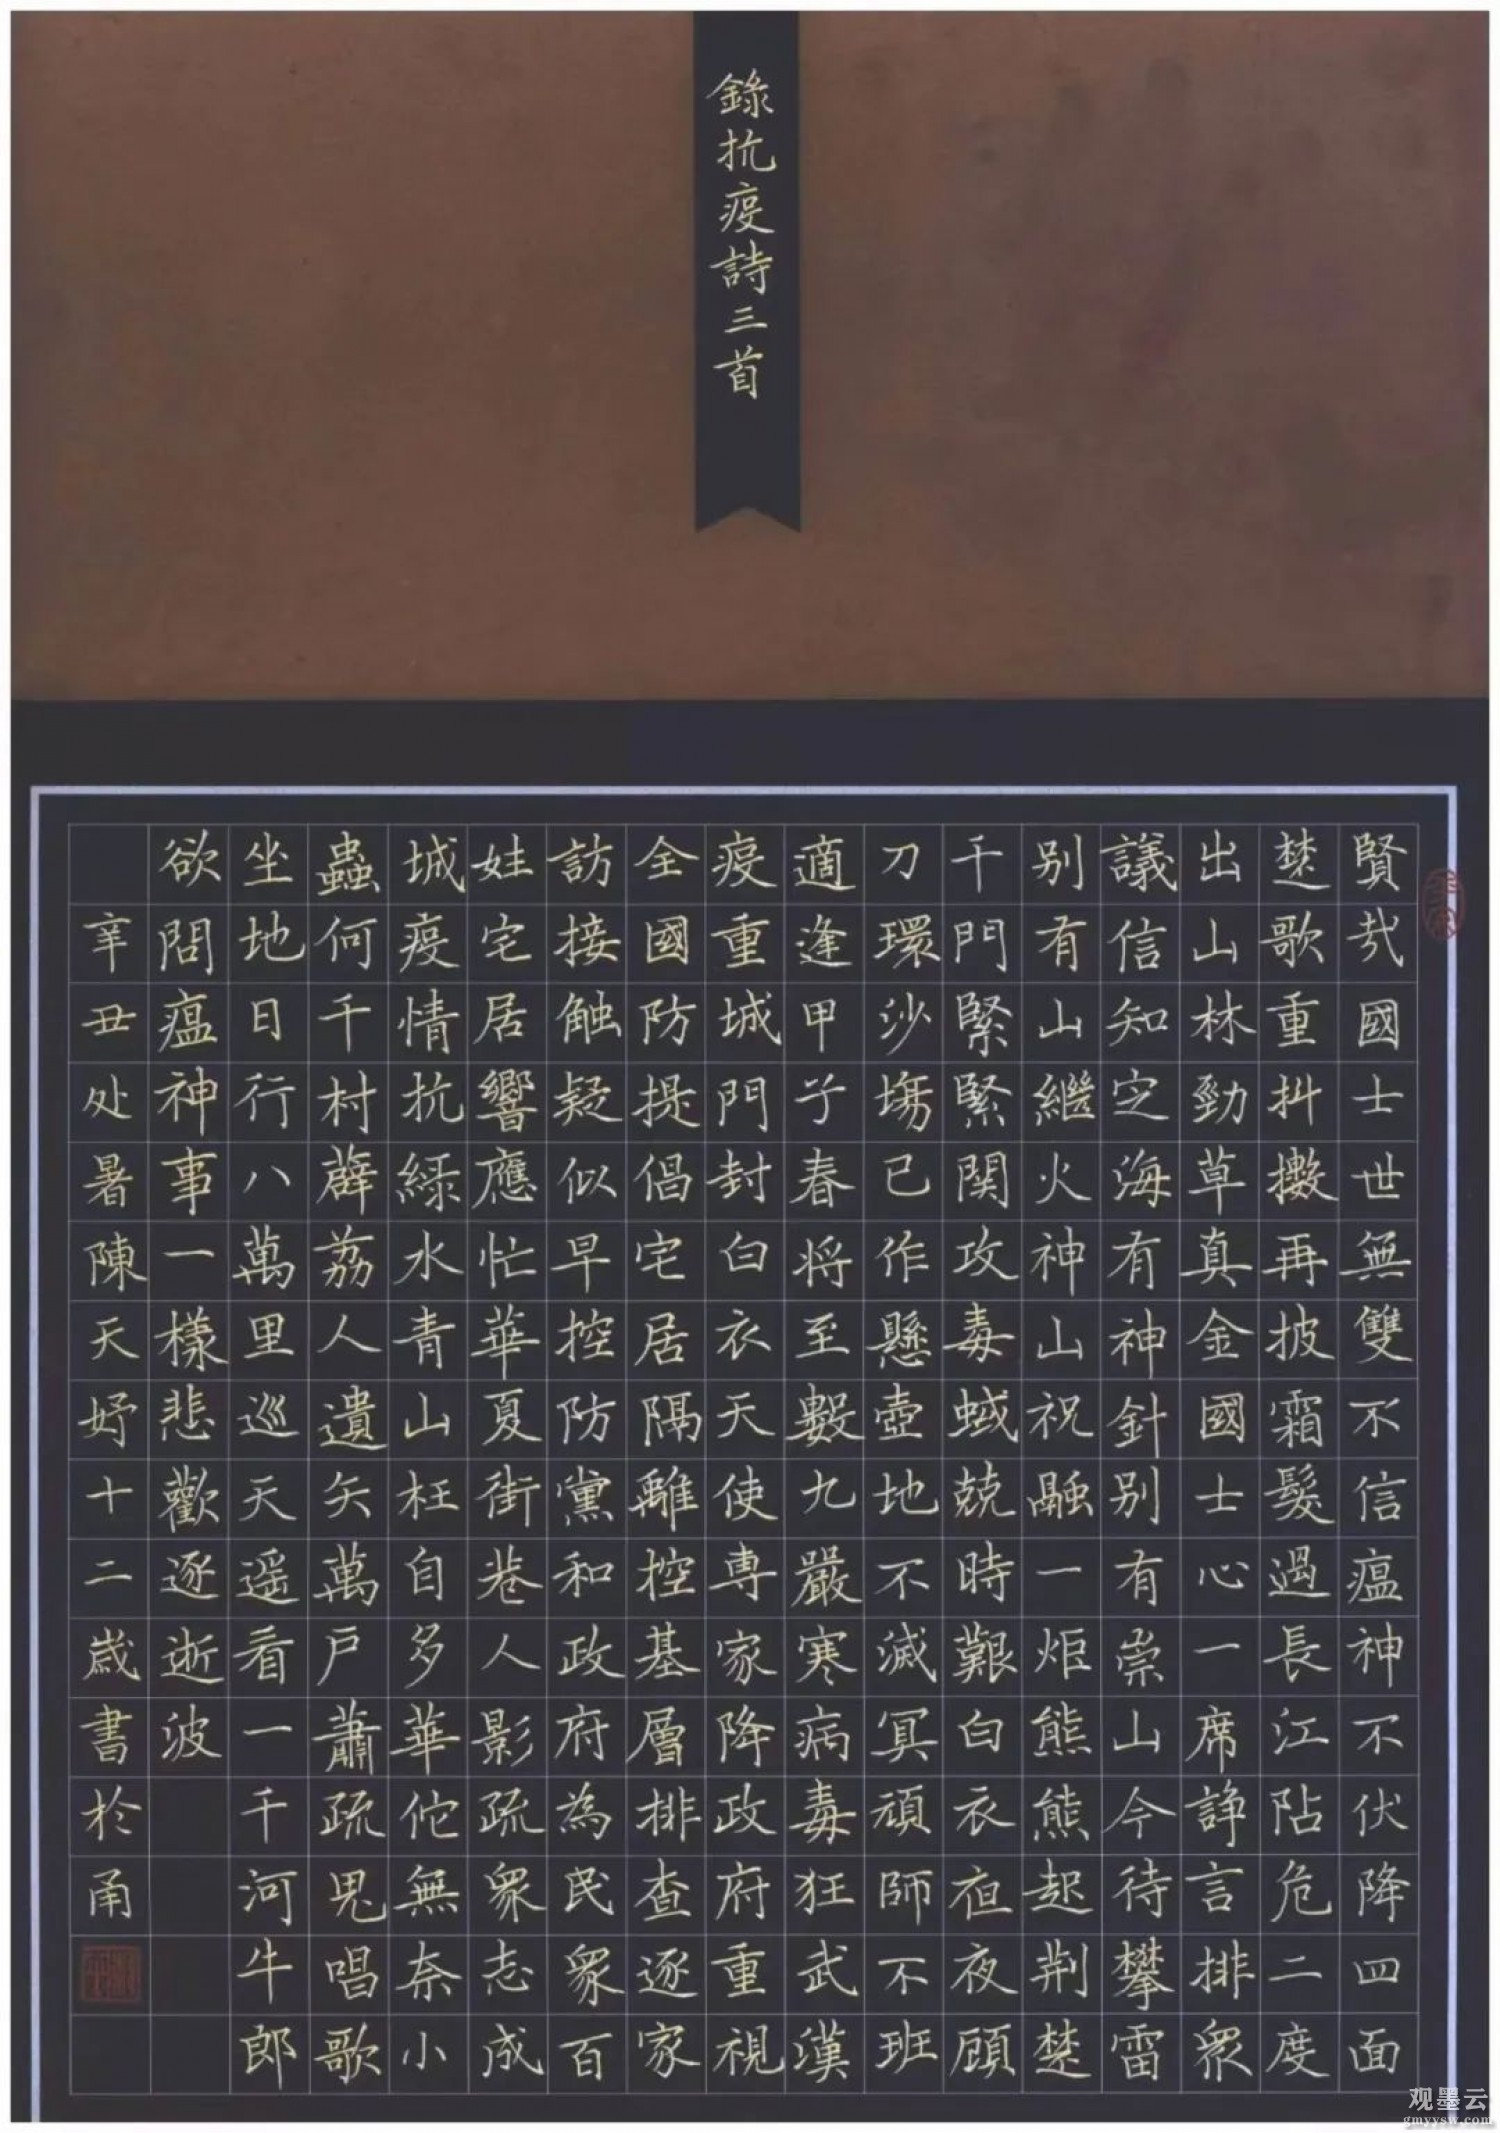 錄抗疫詩三首
賢哉國士世無雙不信瘟神不伏降四面
楚歌重抖擻再披霜髮過長江阽危二度
出山林勁草真金國士心一席諍言排眾
議信知定海有神針别有崇山今待攀雷
别有山繼火神山祝融一炬熊熊起荆楚
千門緊緊関攻毒蜮兢時艱白衣夜顧
刀環沙場已作懸壺地不滅冥頑師不班
適逢甲子春将至數九嚴寒病毒狂武漢
疫重城門封白衣天使専家降政府重視
全國防提倡宅居隔離控基層排查逐家
訪接触疑似早控防黨和政府為民眾百
姓宅居響應忙華夏街巷人影疏眾志成
城疫情抗綠水青山枉自多華佗無奈小
蟲何千村薜荔人遺矢萬戶蕭疏鬼唱歌
坐地日行八萬里巡天遥看一千河牛郎
欲問瘟神事一樣悲歡逐逝波
辛丑处暑陳天妤十二歲書於甬
观墨云
gmyysw.com